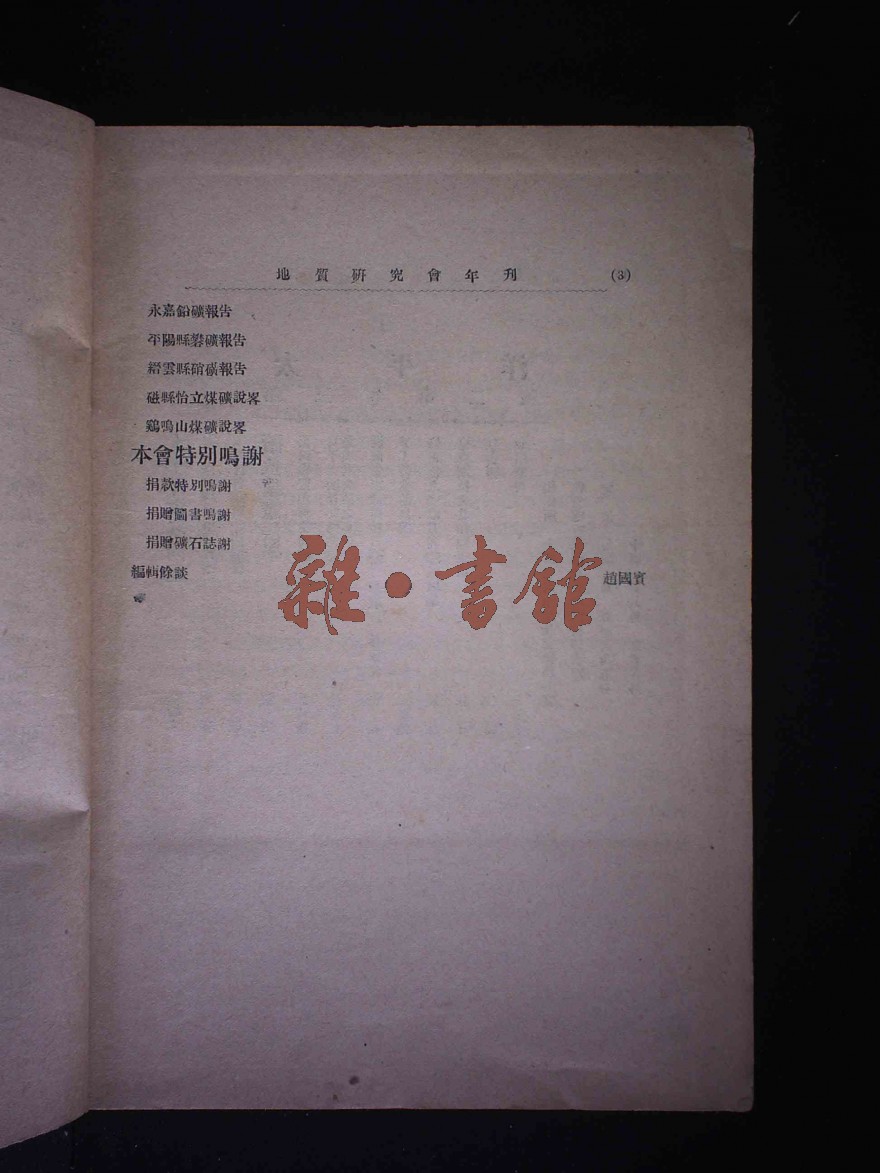 地質研究會年刊 (3)
永嘉鉛礦報告
平陽縣礬礦報告
縉雲縣硝磺報告
磁縣怡立煤礦說畧
鷄鳴山煤礦說畧
本會特別鳴謝
捐款特別鳴謝
捐贈圖書鳴謝
捐贈礦石誌謝
編輯餘談 趙國賓
雜·書館